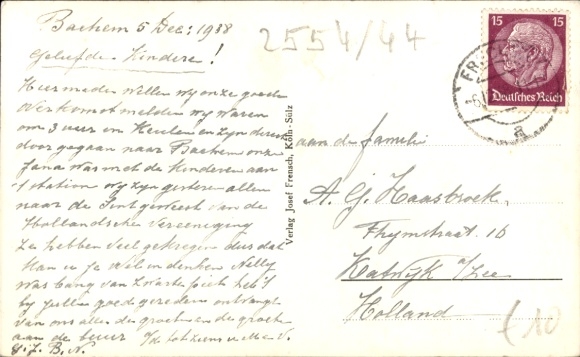 Bachem 5 Dec: 1938
Geliefde Kinderen!
Hiermede willen wy onze goede
overkomst melden wy waren
om 3 uur in Keulen en zyn direct
door gegaan naar Bachem onze
Jana was met de Kinderen aan
't station wy zyn gisteren allen
naar de Sint geweest van de
Hollandsche Vereeniging
Ze hebben veel gekregen dus dat
kan u je wel indenken Nelly
was bang van Zwarte piet heb't
by jullie goed gereden ontvangt
van ons allen de groeten en de groeten
aan de buur
2554/44
Verlag Josef Frensch, Köln-Sülz
15 15
Deutsches Reich
FRE
a
aan de familie
A. G. Haasbroek
Thymstraat 16
Katwijk a/zee
Holland
£10